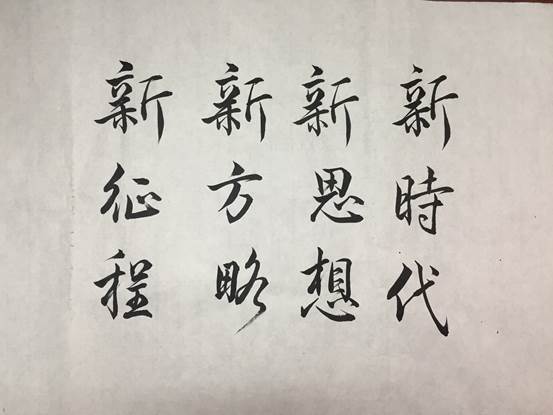 新時代
新思想
新方略
新征程